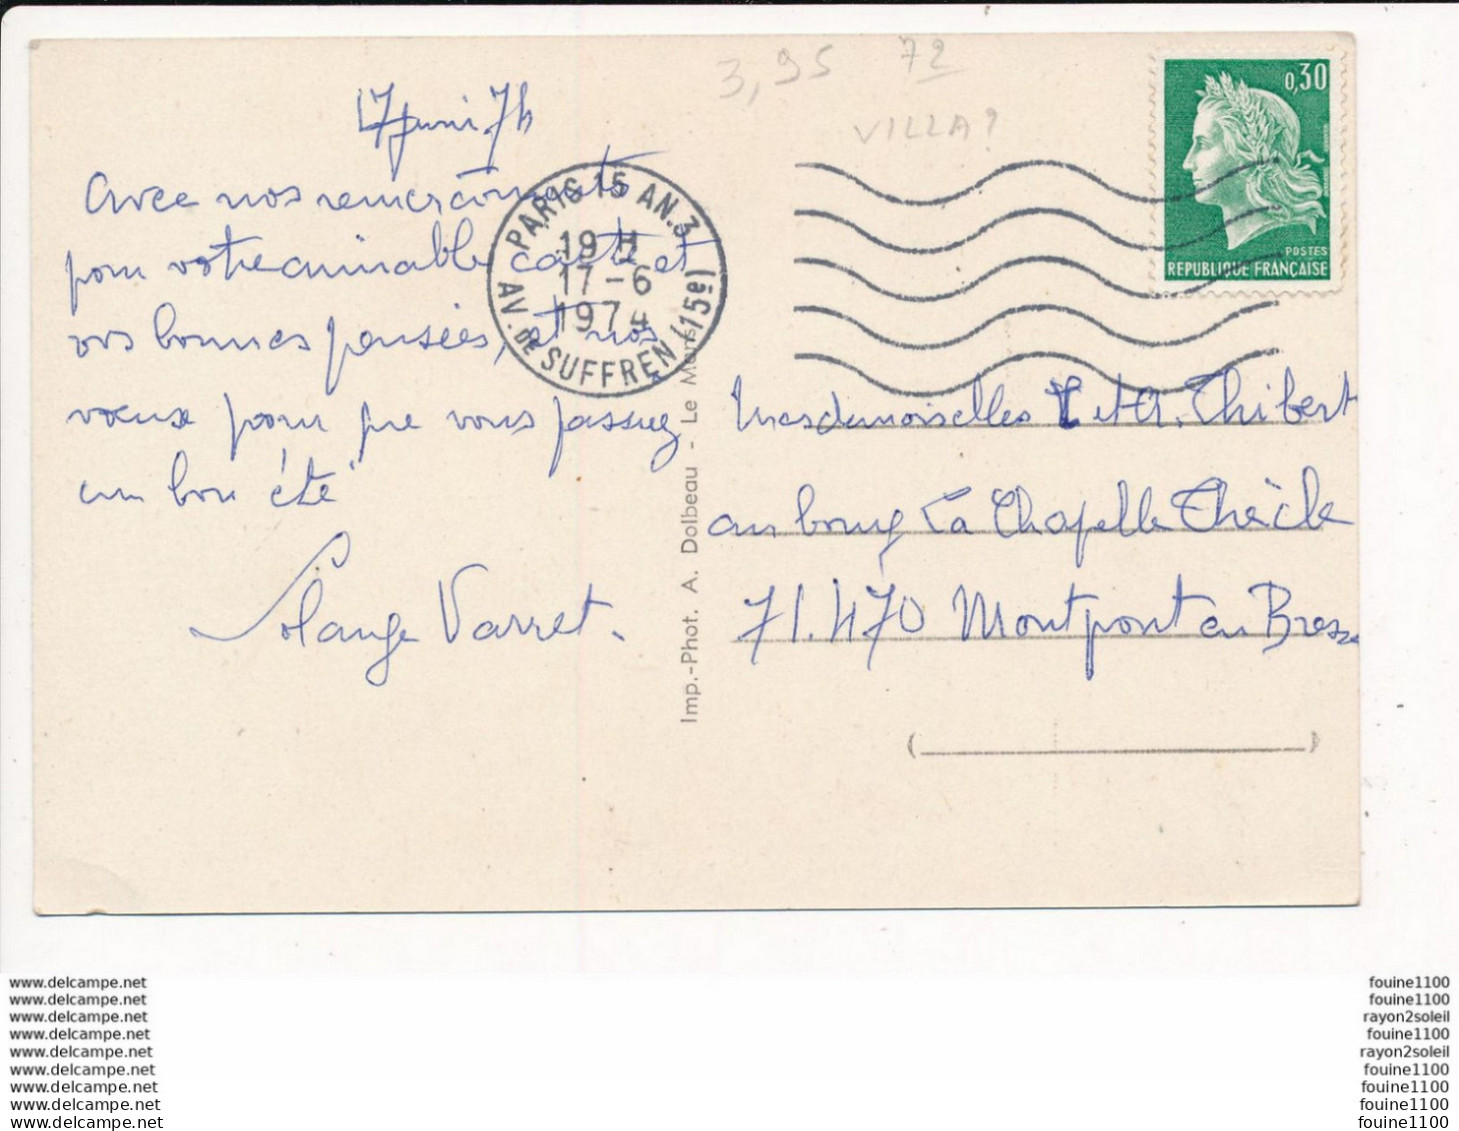 3,95 72
VILLA?
17 juin 74
Avec nos remerciements
pour votre aimable carte et
vos bonnes pensées, et nos
vœux pour que vous passiez
un bon été
Solange Varret.
PARIS 15 AN.3
19 H
17-6
1974
AV. DE SUFFREN (15e)
0,30
POSTES
REPUBLIQUE FRANÇAISE
Imp.-Phot. A. Dolbeau - Le Mans
Mesdemoiselles et A. Thibert
au bourg La Chapelle Thècle
71.470 Montpont en Bresse
www.delcampe.net
www.delcampe.net
www.delcampe.net
www.delcampe.net
www.delcampe.net
www.delcampe.net
www.delcampe.net
www.delcampe.net
www.delcampe.net
fouine1100
fouine1100
rayon2soleil
fouine1100
rayon2soleil
fouine1100
fouine1100
fouine1100
fouine1100